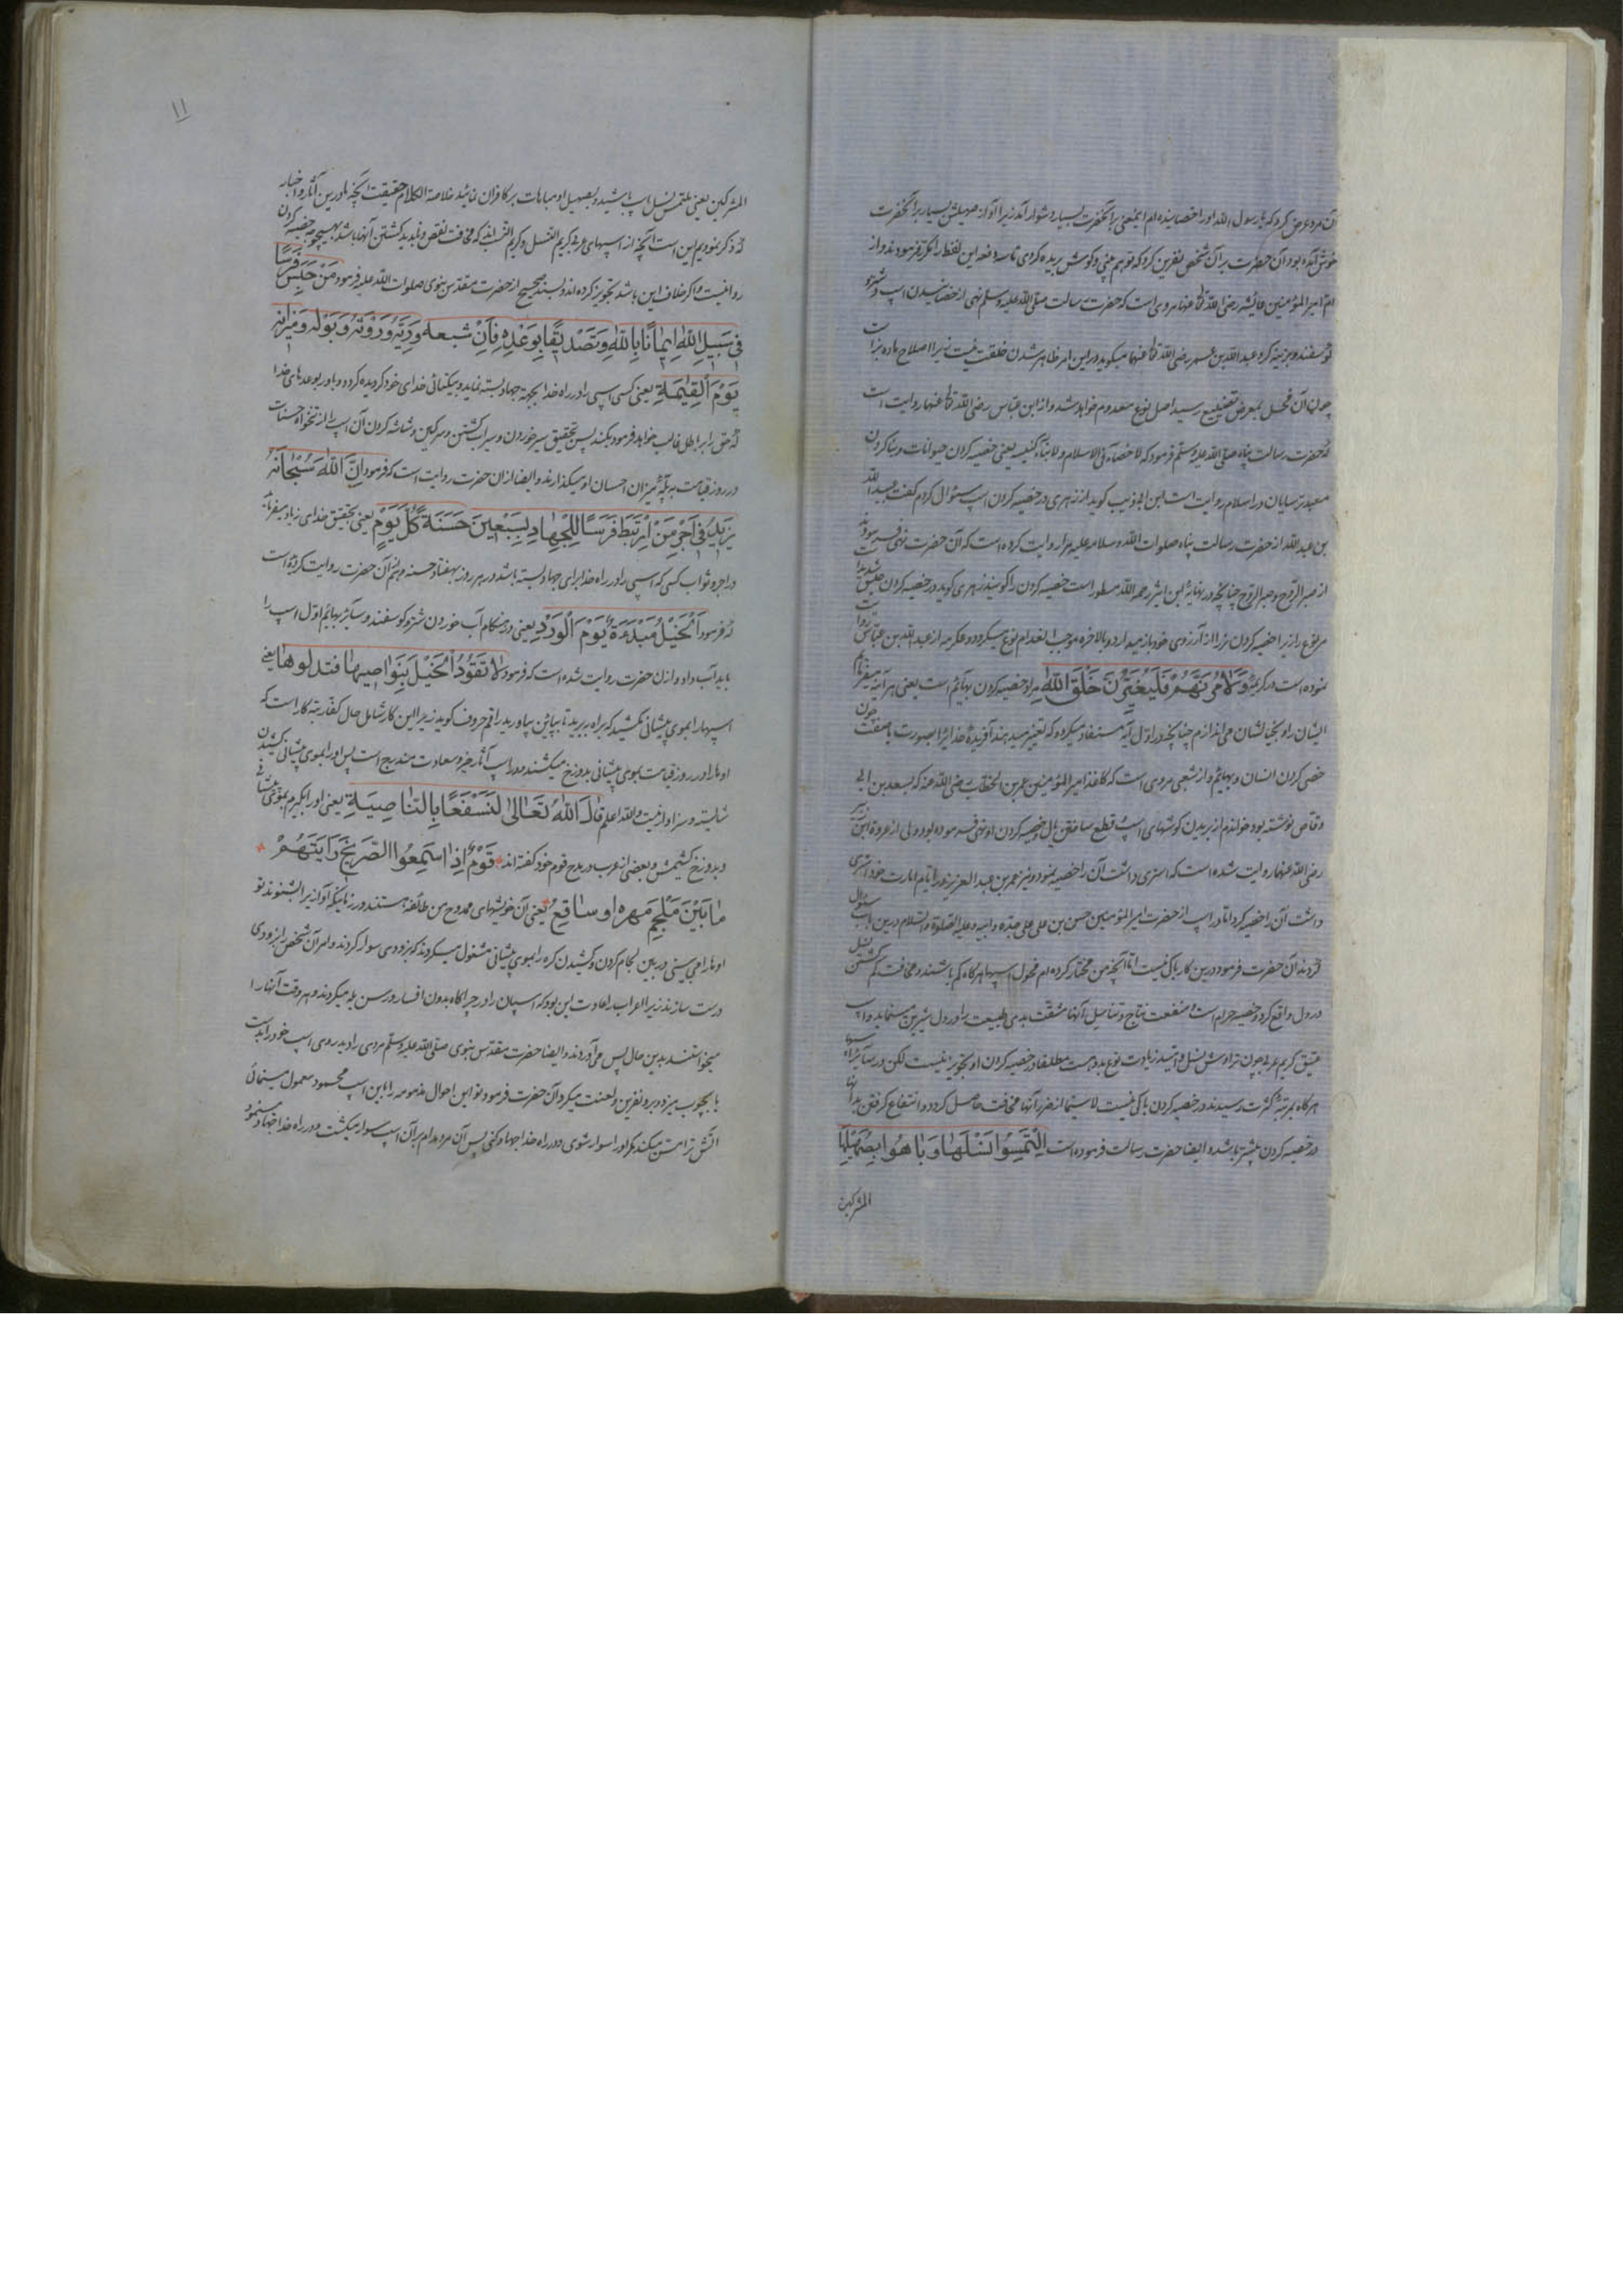 آن مرد عرض کرد که یا رسول الله او را خصا ینده ام اینمعنی بر آنحضرت بسیار دشوار آمد زیرا آواز صهیلش بسیار بر آنحضرت
خوش آمده بود آن حضرت بر آن شخص نفرین کرد که تو هم بینی و گوش بریده کردی تا سه دفعه این لفظ را مکرّر فرمودند و از
امّ امیر المؤمنین عائشه رضی الله تعا عنها مروی است که حضرت رسالت صلّی الله علیه وسلم نهی از خصانیدن اسپ و شتر و
گوسفند و بز بینه کرد عبد الله بن عمر رضی الله تعا عنهما میگوید در این امر ظاهر شدن خلقت نیست زیرا اصلاح ماده بز است
چون آن فحل بمعرض تضییع رسید اصل نوع معدوم خواهد شد و از ابن عباس رضی الله تعا عنهما روایت است
که حضرت رسالت پناه صلّی الله علیه وسلّم فرمود که لا خصاء فی الاسلام ولا بناء کنیسه یعنی خصیه کردن حیوانات و بنا کردن
معبد ترسایان در اسلام روا نیست ابن ابی ذیب کوید از زهری در خصیه کردن اسپ سئوال کردم کفت عبید الله
بن عبد الله از حضرت رسالت پناه صلوات الله وسلامه علیه مرا روایت کرده است که آن حضرت نهی فرمودند
از صبر الرّوح و صبر الرّوح چنانچه در نهایهٔ ابن اثیر رحمه الله مسطور است خصیه کردن را کویند زهری کوید در خصیه کردن خلق شدید
مرنوع را زیرا خصیه کردن نر را از آرزوی خود باز میدارد و بالاخره موجب انعدام نوع میکردد و عکرمه از عبد الله بن عباس روایت
نموده است در کریمهٔ وَلَاٰمُرَنَّهُمْ فَلَیُغَیِّرُنَّ خَلْقَ اللهِ مراد خصیه کردن بهائم است یعنی هر آینه میفرمایم
ایشان را و بخیه لشان می اندازم چنانچه در اوّل آیه مستفاد میکردد که تغییر میدهند آفریدهٔ خدا را بصورت یا صفت چون
خصی کردن انسان و بهائم و از شعبی مروی است که کاغذ امیر المؤمنین عمر بن الخطاب رضی الله عنه که بسعد بن ابی
وقاص نوشته بود خواندم از بریدن کوشهای اسپ و قطع ساختن یال و خصیه کردن او نهی فرموده بود ولی از عروة ابن زبیر
رضی الله عنهما روایت شده است که استری داشت آن را خصیه نمود و نیز عمر بن عبد العزیز در ایام امارت خود استری
داشت آن را خصیه کرد اما در اسپ از حضرت امیر المؤمنین حسن بن علی علی جدّه و ابیه وعلیه الصّلوة والسّلام درین باب سئوال
کردند آن حضرت فرمود درین کار باکی نیست اما آنچه من مختار کرده ام فحول اسپها هر کاه کم باشند و مخافت کم گشتن نسل
در دل واقع کردد خصیه حرام است و منفعت نتاج و تناسل آنها مشقّت بدی طبیعت را در دل شیرین مینماید و اسپ
عتیق کریم عربی چون تراوش نسل و امید زیادت نوع بدوست مطلقا در خصیه کردن او تجویز نیست لکن در سائر اسپها
هر کاه بمرتبهٔ کثرت رسیدند در خصیه کردن باکی نیست لا سیّما از ضرر آنها مخافت حاصل کردد و انتفاع کرفتن بدانها
در خصیه کردن بیشتر باشد و ایضا حضرت رسالت فرموده است اِلْتَمِسُوا نَسْلَهَا وَبَاهُوا بِصَهِیلِهَا
المشرکین
۱۱
المشرکین یعنی ملتمس نسل اسپ باشید و بصهیل او مباهات بر کافران نمائید خلاصة الکلام حقیقت آنچه ما درین آثار و اخبار
که ذکر نمودیم این است آنچه از اسپهای عربی کریم النّسل و کریم النّسب اند که مخافت نقص و ناپدید کشتن آنها باشد بهیچوجه خصیه کردن
روا نیست و اگر خلاف این باشد تجویز کرده اند و بسند صحیح از حضرت مقدس نبوی صلوات الله علیه فرمود مَنْ حَبَسَ فَرَسًا
فِی سَبِیلِ اللهِ اِیمَانًا بِاللهِ وَتَصْدِیقًا بِوَعْدِهِ فَاِنَّ شبعه وَرِیَّهُ وَرَوْثَهُ وَبَوْلَهُ وَمِیزَانَهُ
یَوْمَ الْقِیٰمَةِ یعنی کسی اسپی را در راه خدا بجهة جهاد بسته نماید و بیکتائی خدای خود کرویده کردد و باور بوعدهای خدا
که حق را بر باطل غالب خواهد فرمود بکند پس بتحقیق سیر خوردن و سیراب کشتن و سرکین و شاشه کردن آن اسپ را از تنخواه حسنات
در روز قیامت به پلّهٔ میزان احسان او میکذارند و ایضا از آن حضرت روایت است که فرمود اِنَّ اللهَ سُبْحَانَهُ
یَزِیدُ فِی اَجْرِ مَنْ اِرْتَبَطَ فَرَسًا لِلْجِهَادِ بِسَبْعِینَ حَسَنَةً کُلَّ یَوْمٍ یعنی بتحقیق خدای زیاد میفرماید
در اجر و ثواب کسی که اسپی را در راه خدا برای جهاد بسته باشد در هر روز بهفتاد حسنه و هم از آن حضرت روایت کرده است
که فرمود اَلْخَیْلُ مُبْدَءَةٌ یَوْمَ الْوِرْدِ یعنی در هنکام آب خوردن شتر و کوسفند و سایر بهائم اوّل اسپ را
باید آب داد و از آن حضرت روایت شده است که فرمود لَا تَقُودُ الْخَیْلَ بِنَوَاصِیهَا فتذلوها یعنی
اسپها را بموی پیشانی نکشید که براه ببرید تا بپائین پیاورید راقم حروف کوید زیرا این کار شامل حال کفّار تبه کار است که
اوها را در روز قیامت بموی پیشانی بدوزخ میکشند و در اسپ آثار خیر و سعادت مندرج است پس او را بموی پیشانی کشیدن
شایسته و سزاوار نیست والله اعلم قَالَ اللهُ تَعَالٰی لَنَسْفَعًا بِالنَّاصِیَةِ یعنی او را بکیرم بموی پیشانی
و بدوزخ کشیمش و بعضی از عرب در مدح قوم خود کفته اند قَوْمٌ اِذَا اسْتَمِعُوا الصَّرِیخَ رَاَیْتَهُمْ
مَا بَیْنَ مُلْجِمِ مهره او سَاقِعِ یعنی آن خویشهای ممدوح من طائفه هستند در زمانیکه آواز یرا شنوند تو
اوها را می بینی در بین لجام کردن و کشیدن کره را بموی پیشانی مشغول میکردند که بزودی سوار کردند و امر آن شخص را بزودی
درست سازند زیرا اعراب را عادت این بود که اسپان را در چراکاه بدون افسار و رسن یله میکردند و هر وقت آنها را
میخواستند بدین حال پس می آوردند و ایضا حضرت مقدّس نبوی صلّی الله علیه وسلّم مردی را دید روی اسپ خود را بدست
یا بچوب میزد و برو نفرین و لعنت میکرد آن حضرت فرمود تو این احوال مذمومه را با این اسپ محسود معمول مینمائی
آتش ترا مس میکند مکر او را سوار شوی و در راه خدا جهاد کنی پس آن مرد مدام بر آن اسپ سوار میکشت و در راه خدا جهاد مینمود